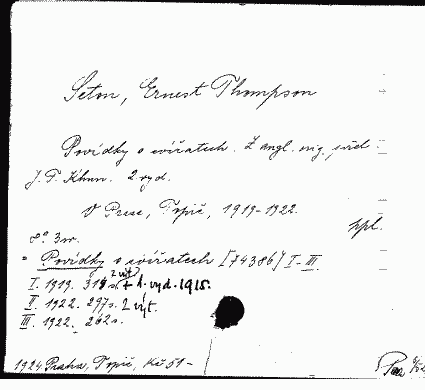 Seton, Ernest Thompson
Povídky o zvířatech. Z angl. orig. přel.
J. F. Khun. 2 vyd.
V Praze, Topič, 1919-1922.
ppl.
8° 3 sv.
Povídky o zvířatech [74386] I-III.
2 výt.
I. 1919. 318 s. + 1. vyd. 1915.
II. 1922. 297 s. 2 výt.
III. 1922. 262 s.
1924 Praha, Topič, Kč 51-